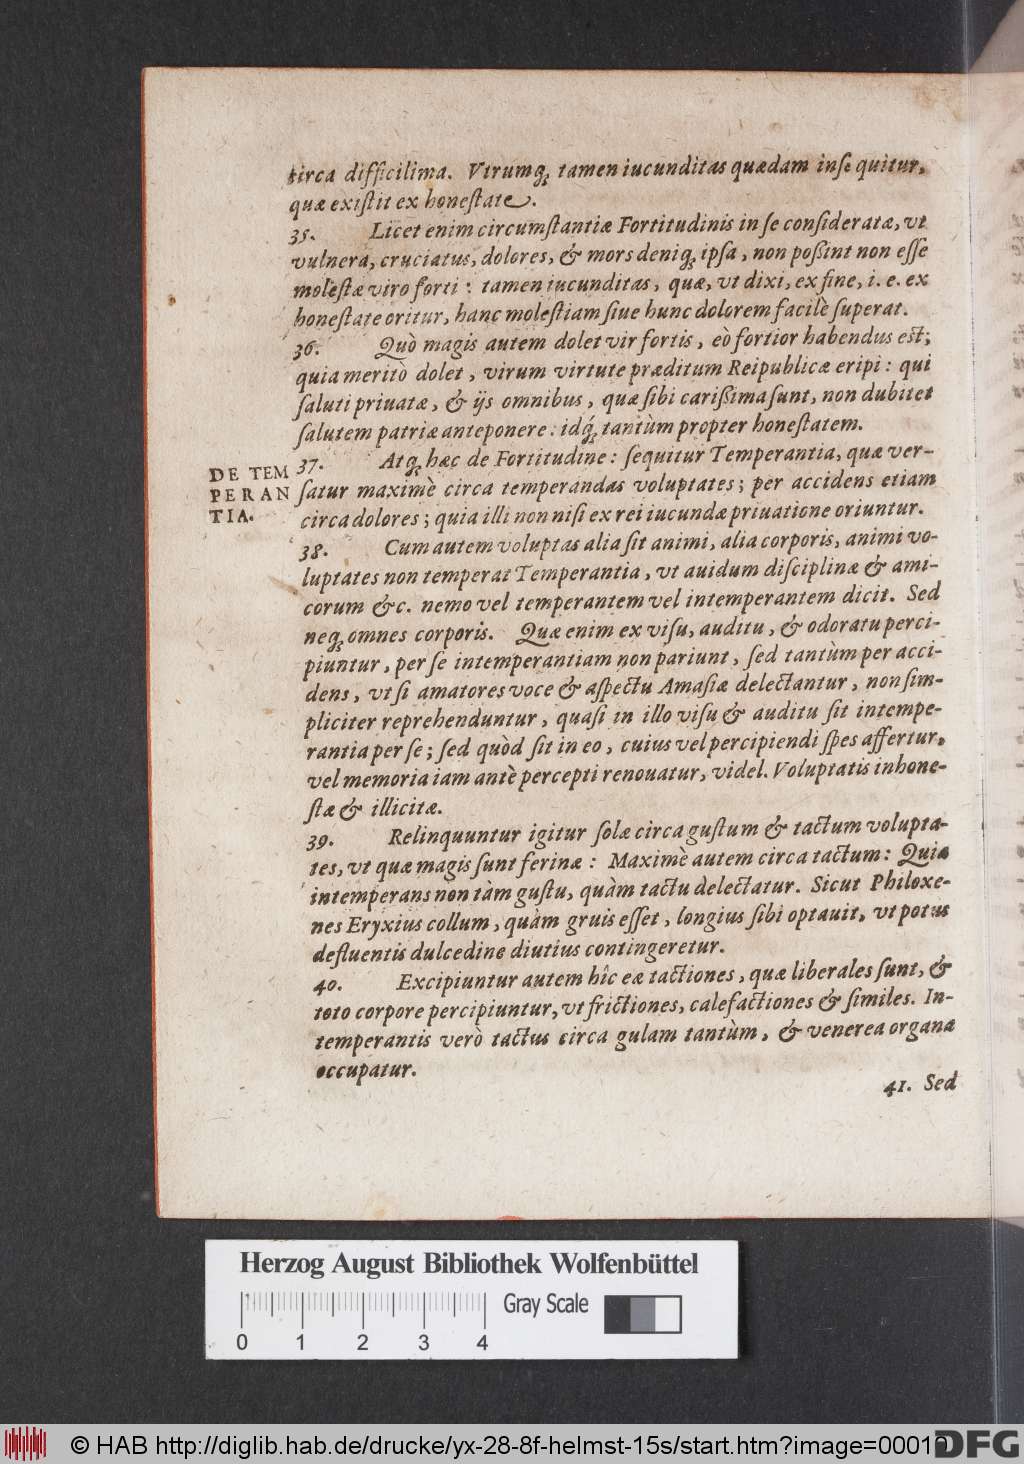 circa difficilima. Vtrumq́; tamen iucunditas quædam inſequitur,
quæ exiſtit ex honeſtate.
35. Licet enim circumſtantiæ Fortitudinis in ſe conſideratæ, vt
vulnera, cruciatus, dolores, & mors deniq; ipſa, non poßint non eſſe
moleſtæ viro forti: tamen iucunditas, quæ, vt dixi, ex fine, i. e. ex
honeſtate oritur, hanc moleſtiam ſiue hunc dolorem facilè ſuperat.
36. Quò magis autem dolet vir fortis, eò fortior habendus est;
quia meritò dolet, virum virtute præditum Reipublicæ eripi: qui
ſaluti priuatæ, & ijs omnibus, quæ ſibi carißima ſunt, non dubitet
ſalutem patriæ anteponere: idq́; tantùm propter honeſtatem.
DE TEM
PERAN
TIA.
37. Atq; hæc de Fortitudine: ſequitur Temperantia, quæ ver-
ſatur maximè circa temperandas voluptates; per accidens etiam
circa dolores; quia illi non niſi ex rei iucundæ priuatione oriuntur.
38. Cum autem voluptas alia ſit animi, alia corporis, animi vo-
luptates non temperat Temperantia, vt auidum diſciplinæ & ami-
corum &c. nemo vel temperantem vel intemperantem dicit. Sed
neq; omnes corporis. Quæ enim ex viſu, auditu, & odoratu perci-
piuntur, per ſe intemperantiam non pariunt, ſed tantùm per acci-
dens, vt ſi amatores voce & aſpectu Amaſiæ delectantur, non ſim-
pliciter reprehenduntur, quaſi in illo viſu & auditu ſit intempe-
rantia per ſe; ſed quòd ſit in eo, cuius vel percipiendi ſpes affertur,
vel memoria iam antè percepti renouatur, videl. Voluptatis inhone-
ſtæ & illicitæ.
39. Relinquuntur igitur ſolæ circa guſtum & tactum volupta-
tes, vt quæ magis ſunt ferinæ: Maximè autem circa tactum: Quia
intemperans non tàm guſtu, quàm tactu delectatur. Sicut Philoxe-
nes Eryxius collum, quàm gruis eſſet, longius ſibi optauit, vt potus
defluentis dulcedine diutius contingeretur.
40. Excipiuntur autem hîc eæ tactiones, quæ liberales ſunt, &
toto corpore percipiuntur, vt frictiones, calefactiones & ſimiles. In-
temperantis verò tactus circa gulam tantùm, & venerea organa
occupatur.
41. Sed
Herzog August Bibliothek Wolfenbüttel
Gray Scale
0 1 2 3 4
© HAB http://diglib.hab.de/drucke/yx-28-8f-helmst-15s/start.htm?image=00010
DFG